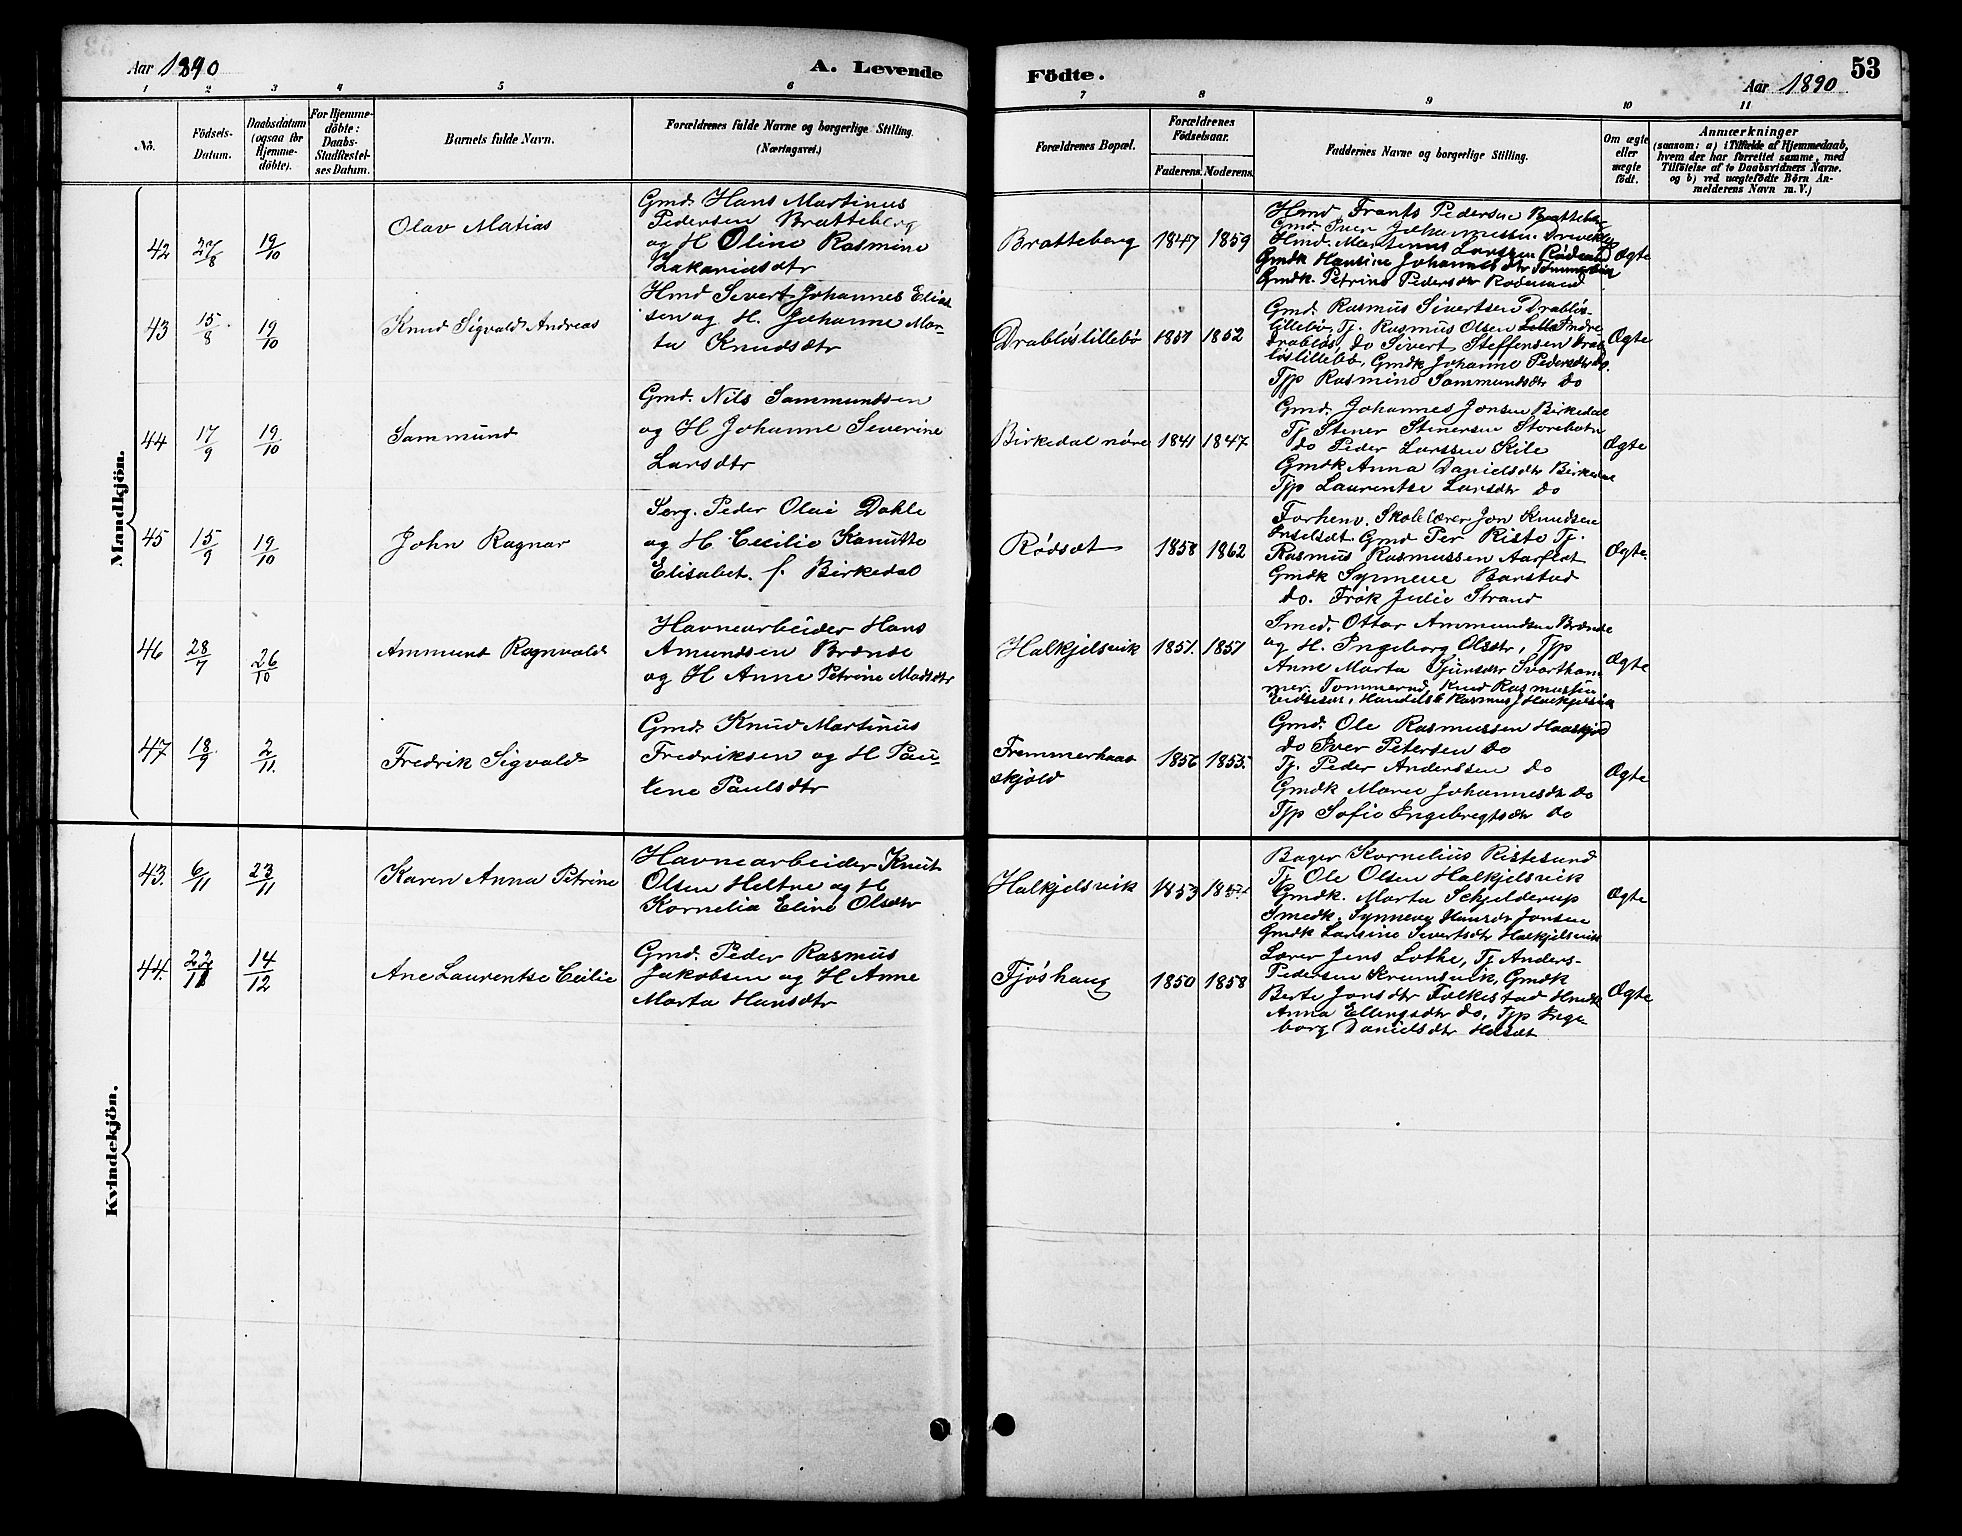 Aar 1890
A. Levende
Födte.
53
Aar 1890
1 2 3 4 5 6 7 8 9 10 11
No.
Födsels-
Datum.
Daabsdatum
(ogsaa for
Hjemme-
döbte).
For Hjemme-
döbte:
Daabs-
Stadfæstel-
ses Datum.
Barnets fulde Navn.
Forældrenes fulde Navne og borgerlige Stilling.
(Næringsvei.)
Forældrenes Bopæl.
Forældrenes
Födselsaar.
Faderens. Moderens.
Faddernes Navne og borgerlige Stilling.
Om ægte
eller
uægte
födt.
Anmærkninger
(saasom: a) i Tilfælde af Hjemmedaab,
hvem der har forrettet samme, med
Tilföielse af to Daabsvidners Navne.
og b) ved uægtefödte Börn An-
melderens Navn m. V.)
Mandkjön.
42 27/8 19/10
Olav Matias
Gmd. Hans Martinus
Pedersen Bratteberg
og H Oline Rasmine
Zakariasdtr
Bratteberg 1847 1859
Hmd. Frants Pedersen Bratteberg
Gmd. Iver Johannessen
Hmd. Martinus Larssen Rødsæt
Gmdk Hansine Johannesdtr
Gmdk. Petrine Pedersdtr
Ægte
43 15/8 19/10
Knud Sigvald Andreas
Hmd Sivert Johannes Elias
sen og H. Johanne Mar-
ta Knudsdtr
Drabløslillebø 1851 1852
Gmd. Rasmus Sivertsen Drabløs-
lillebø, Tj. Rasmus Olsen Indre
Drabløs, do Sivert Steffensen Drab
løslillebø, Gmdk Johanne Pedersdtr do.
Tjp Rasmine Sammundsdtr do
Ægte
44 17/9 19/10
Sammund
Gmd. Nils Sammundsen
og H Johanne Severine
Larsdtr
Birkedal nøre 1841 1847
Gmd. Johannes Jonsen Birkedal
Tj Stener Stenersen Storebotn
do Peder Larssen Kile
Gmdk Anna Danielsdtr Birkedal
Tjp Laurentse Larsdtr do
Ægte
45 15/9 19/10
John Ragnar
Serg. Peder Olai Dahle
og H. Cecilie Kanutte
Elisabet f. Birkedal
Rødsæt 1858 1862
Forhenv. Skolelærer Jon Knudsen
Gmd Per Riste Tj.
Rasmus Rasmussen Aarflot
Gmdk Synneve Barstad
do. Frøk Julie Strand
Ægte.
46 28/7 26/10
Ammund Ragnvald
Havnearbeider Hans
Amundsen Brænde
og H Anne Petrine Madsdtr
Halkjelsvik 1851. 1851
Smed. Ottar Ammundsen Brænde
og H. Ingeborg Olsdtr, Tjp
Anne Marta Svartham
mer. Tømmermd. Knud Rasmussen
Handelsb Rasmus J Halkjelsvik
Ægte
47 18/9 2/11.
Fredrik Sigvald
Gmd. Knud Martinus
Fredriksen og H Pau-
line Paulsdtr
Fremmerhaav
skjold 1856 1853.
Gmd. Ole Rasmussen Haaskjold
do Iver Petersen do
Tj. Peder Anderssen do
Gmdk Marie Johannesdtr do
Tjp Sofie Ingebregtsdtr do
Ægte
Kvindekjön.
43. 6/11 23/11
Karen Anna Petrine
Havnearbeider Knut
Olsen Heltne og H
Kornelia Eline Olsdtr
Halkjelsvik 1853
Bager Kornelius Ristesund
Tj Ole Olsen Halkjelsvik
Gmdk. Marta Schjelderup
Smedk. Synneve Jonsen
Gmdk Larsine Sivertsdtr Halkjelsvik
Ægte
44. 22/11 14/12
Ane Laurentse Cecilie
Gmd. Peder Rasmus
Jakobsen og H Anne
Marta Hansdtr
Fjøshaug 1850 1858
Lærer Jens Lothe, Tj Anders
Pedersen Krumsvik, Gmdk
Berte Jonsdtr Folkestad Hmdk
Anna Ellingsdtr do, Tjp Inge
borg Danielsdtr
Ægte